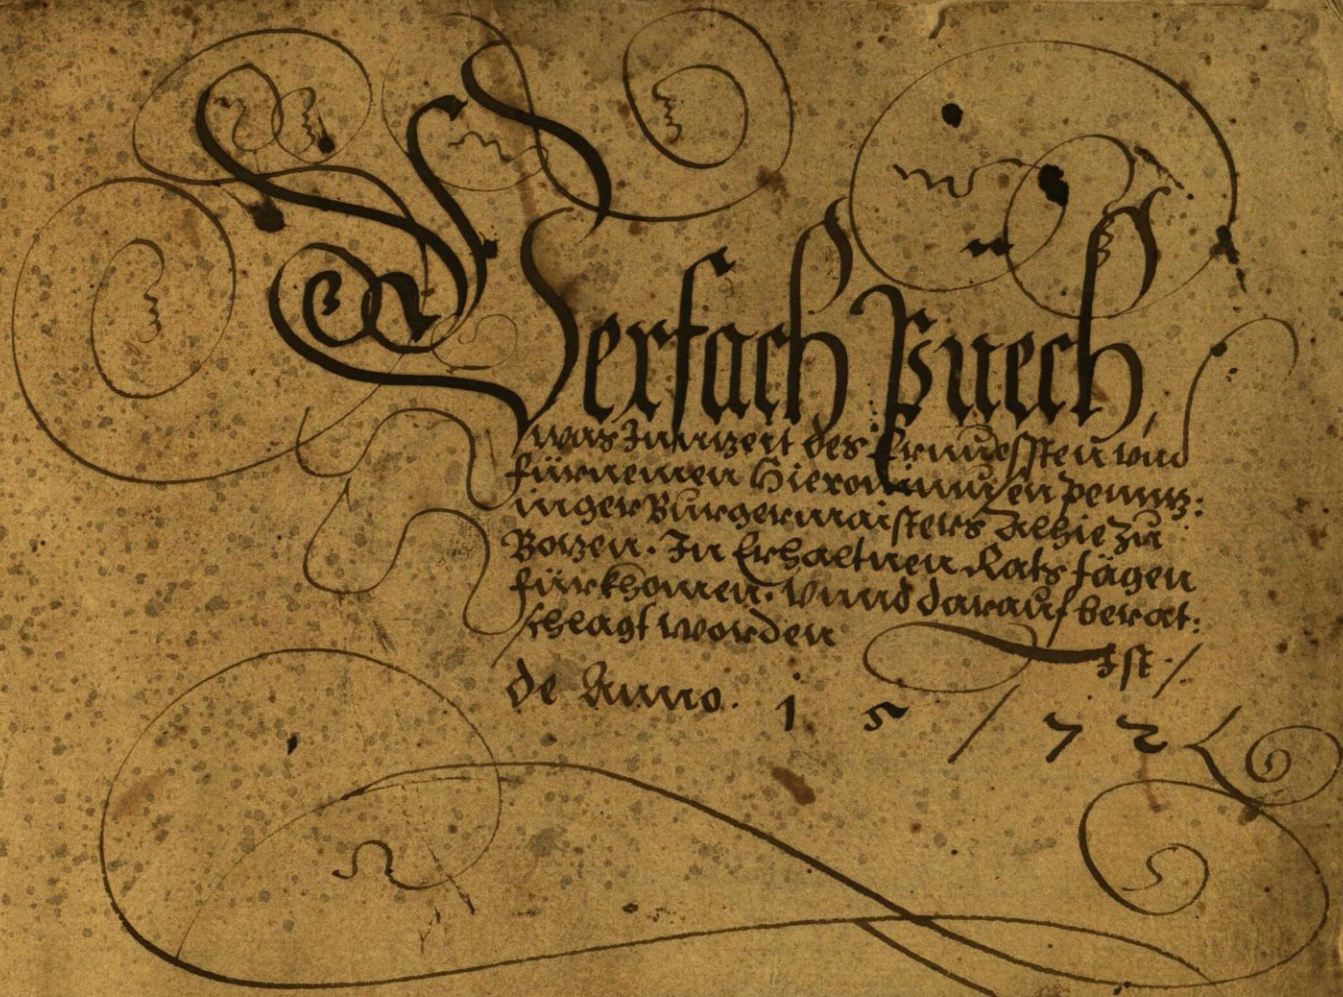 Verfach Puech,
was Inn zeit des Ernuessten vnd
fürnemen Hieronimusen Pennz:
inger Burgermaisters Alhie zu
Bozen. In Erhaltnen Rats tägen
fürkhomen. vnnd darauf berat:
schlagt worden
Ist ./
de Anno. 1 5 / 7 2